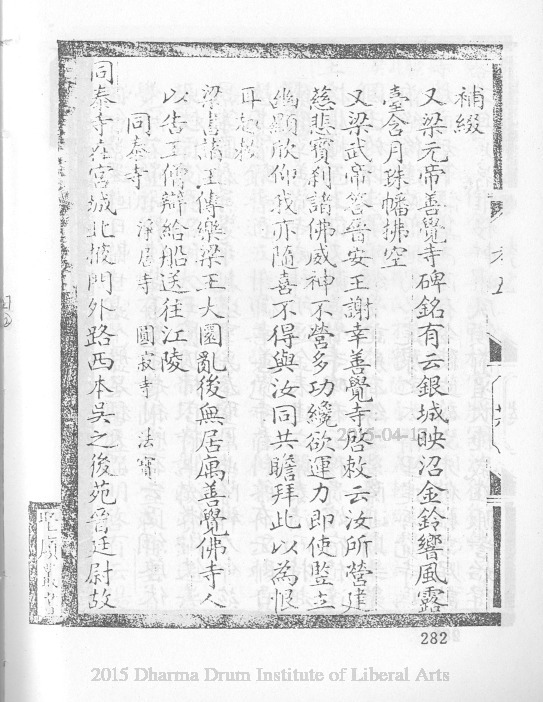 補綴
又梁元帝善覺寺碑銘有云銀城映沼金鈴響風露
臺含月珠幡拂空
又梁武帝答晉安王謝幸善覺寺啓敕云汝所營建
慈悲寶刹諸佛威神不營多功纔欲運力即使監立
幽顯欣仰我亦隨喜不得與汝同共瞻拜此以為恨
耳
梁書諸王傳樂梁王大圜亂後無居寓善覺佛寺人
以告王僧辯給船送往江陵
同泰寺 淨居寺 圓寂寺 法寶
同泰寺在宮城北掖門外路西本吳之後苑晉廷尉故
282
2015-04-13
2015 Dharma Drum Institute of Liberal Arts